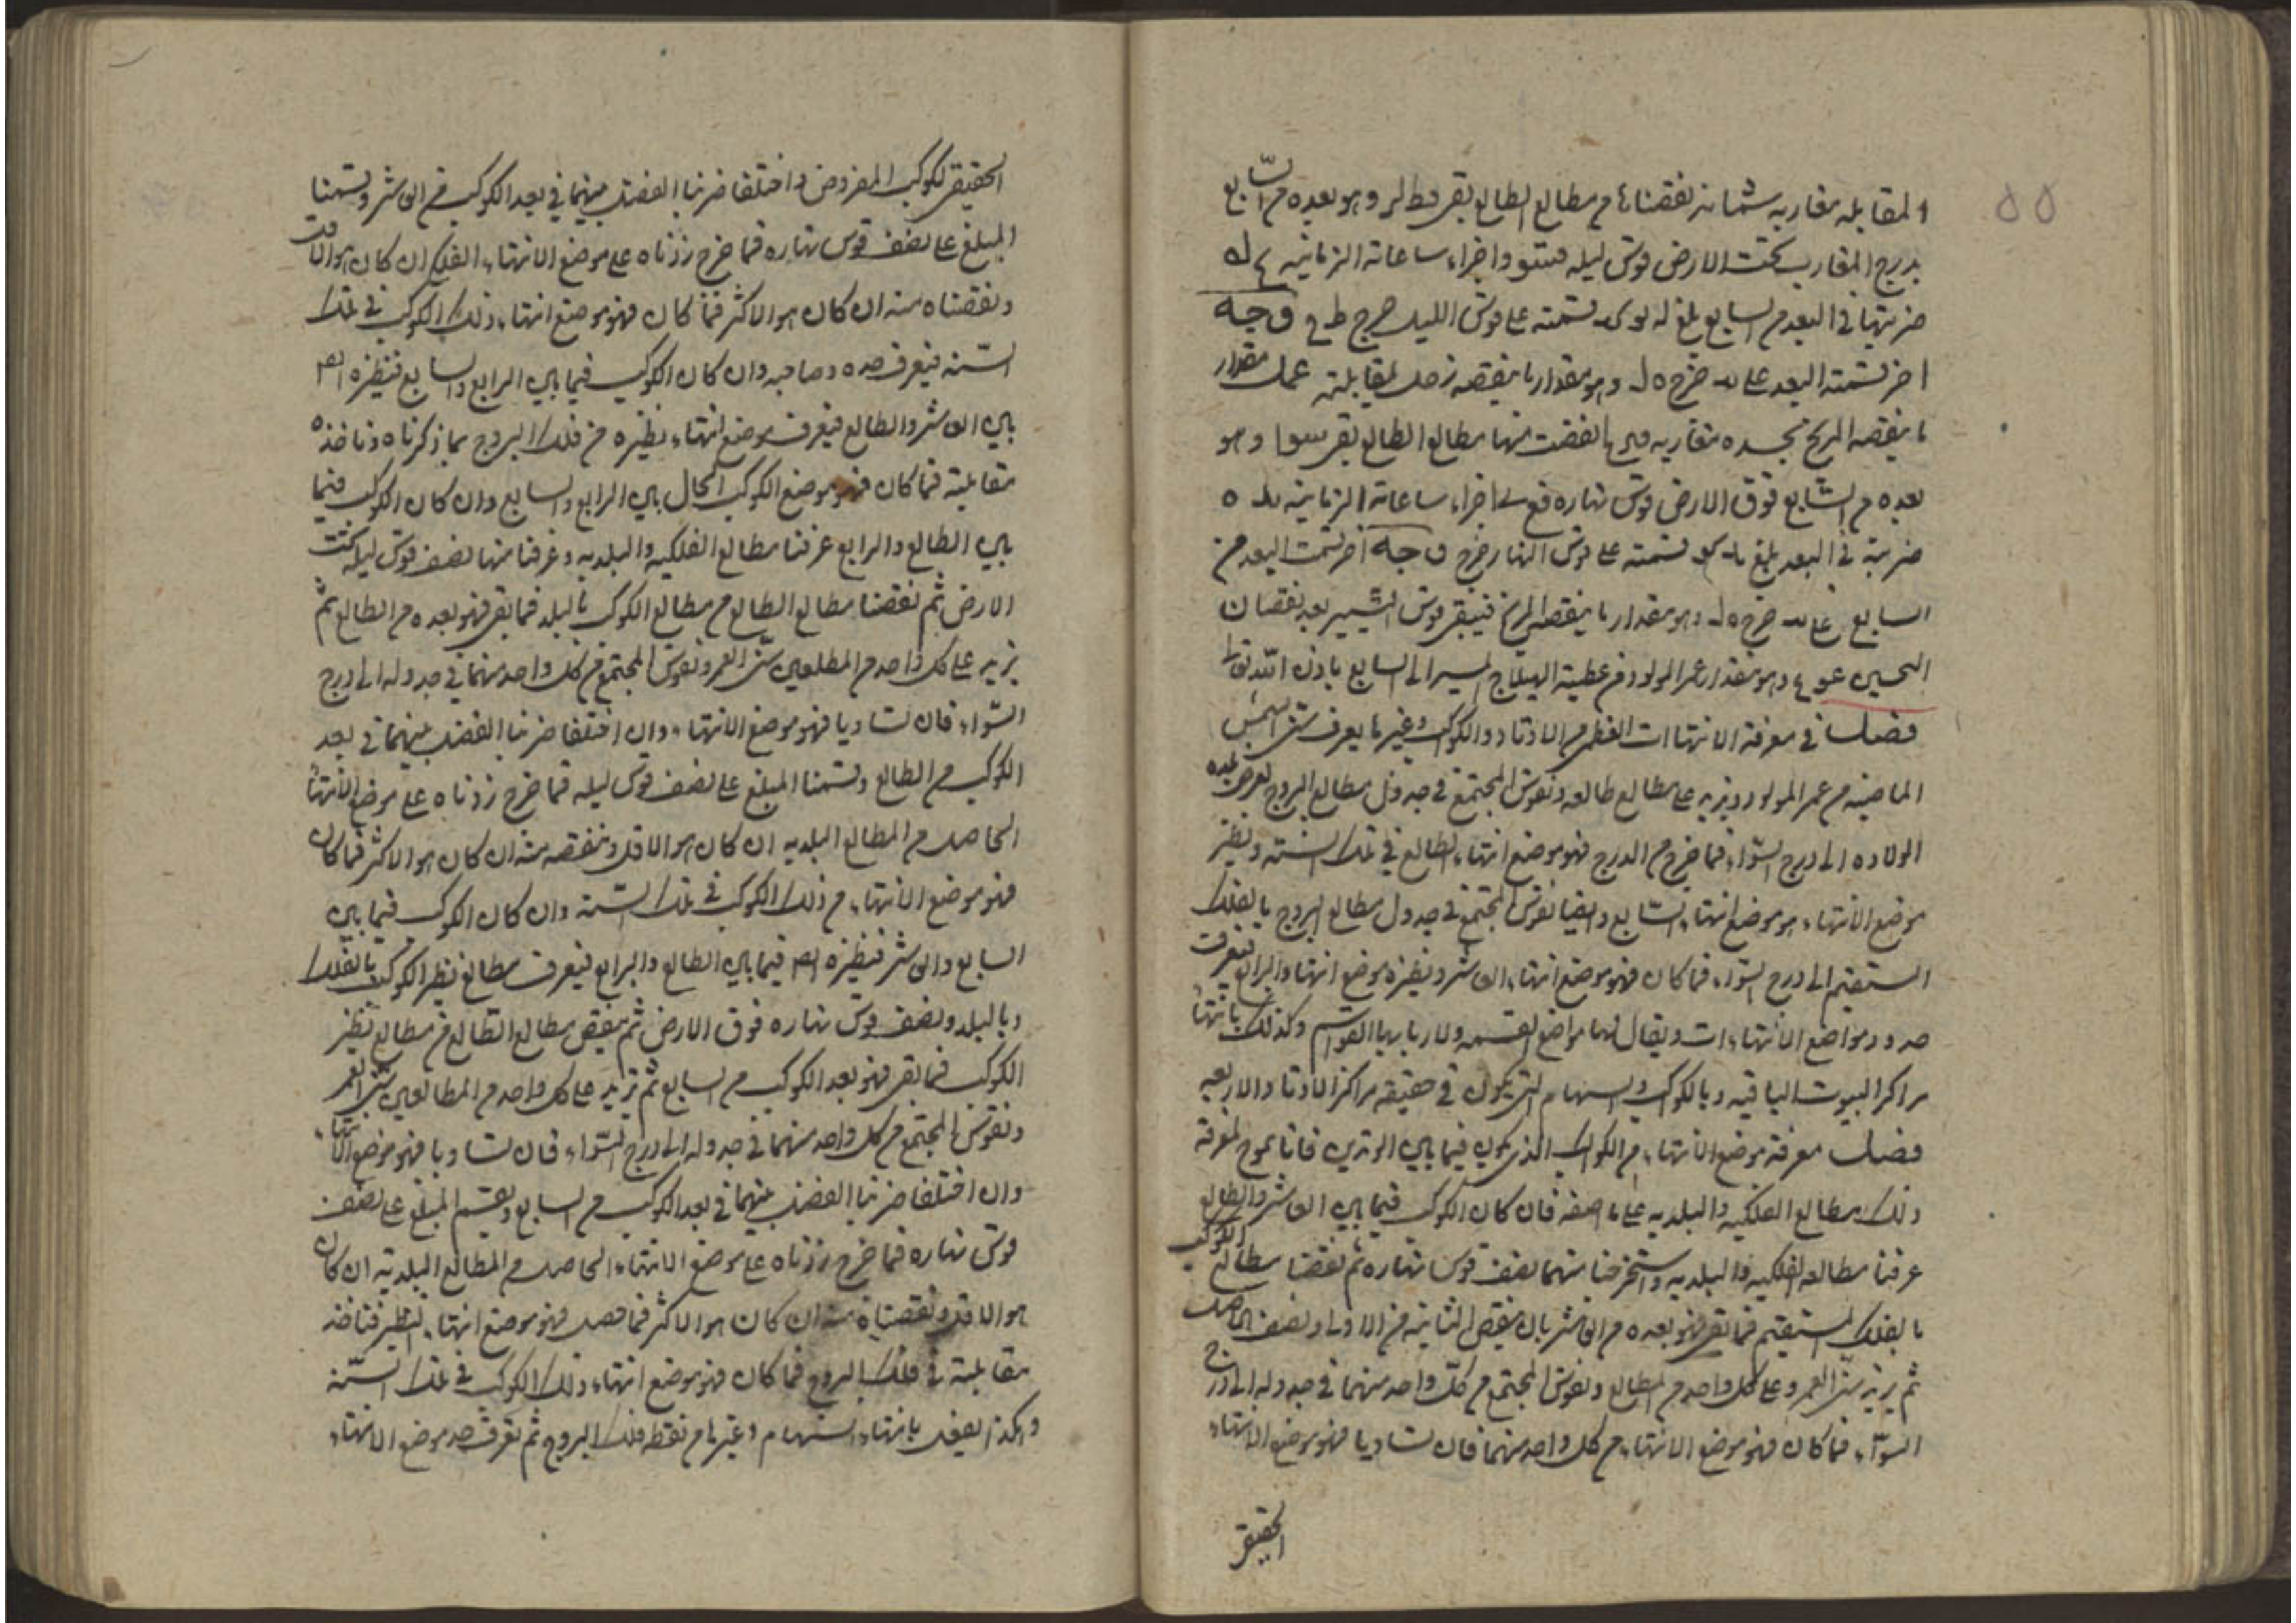 ٥٥
المقابله مغاربه شمانه نقصناها من مطالع الطالع بقى قط لر وهو بعده من السابع
بدرج المغارب تحت الارض قوس ليله واجزاء ساعاته الزمانيه
ضربتها في البعد من السابع بلغ قسمته على قوس الليل خرج وجه
اخر قسمته البعد على خرج وهو مقدار ما ينقصه زحل لمقابلته عمل مقدار
ما ينقصه المريخ بجسده مغاربه نقصت منها مطالع الطالع بقى وهو
بعده من السابع فوق الارض قوس نهاره اجزاء ساعاته الزمانيه
ضربته في البعد بلغ قسمته على قوس النهار خرج وجه اخر قسمت البعد من
السابع على خرج وهو مقدار ما ينقص المريخ فيبقى قوس التسيير بعد نقصان
النحسين وهو مقدار عمر المولود من عطية الهيلاج لمسير الى السابع باذن الله تعالى
فصل في معرفة الانتهاات العظمى من الاوتاد والكواكب وغيرها يعرف سنى الشمس
الماضيه من عمر المولود ونزيد على مطالع طالعه ونقوس المجتمع في جدول مطالع البروج لعرض بلده
الولاده الى درج السواء فما خرج من الدرج فهو موضع انتهاء الطالع في تلك السنة ونظير
موضع الانتهاء هو موضع انتهاء السابع وايضا نقوس المجتمع في جدول مطالع البروج بالفلك
المستقيم الى درج السواء فما كان فهو موضع انتهاء العاشر ونظيره موضع انتهاء الرابع فيعرف
حدود مواضع الانتهاءات ويقال لها مواضع القسمه ولاربابها القواسم وكذلك بانتهاء
مراكز البيوت الباقيه وبالكواكب والسهام التى يكون في حقيقه مراكز الاوتاد الاربعه
فصل معرفة موضع الانتهاء من الكواكب الذى يكون فيما بين الوتدين فانا نحوج لمعرفة
ذلك مطالع الفلكيه والبلديه على ما اصفه فان كان الكوكب فيما بين العاشر والطالع
عرفنا مطالعه الفلكيه والبلديه واستخرجنا منهما نصف قوس نهاره ثم نقصنا مطالع الكوكب
بالفلك المستقيم فما بقى فهو بعده من العاشر بان ينقص الثانيه من الاولى ونصف الحاصل
ثم نزيد سنى العمر على كل واحد من المطالع ونقوس المجتمع من كل واحد منهما في جدوله الى درج
السواء فما كان فهو موضع الانتهاء من كل واحد منهما فان تساويا فهو موضع الانتهاء
الحقيقى
الحقيقى لكوكب المفروض واختلفا ضربنا الفضل بينهما في بعد الكوكب من العاشر وقسمنا
المبلغ على نصف قوس نهاره فما خرج زدناه على موضع الانتهاء الفلكى ان كان هو الاقل
ونقصناه منه ان كان هو الاكثر فما كان فهو موضع انتهاء ذلك الكوكب في تلك
السنه فيعرف حده وصاحبه وان كان الكوكب فيما بين الرابع والسابع فنظيره
بين العاشر والطالع فيعرف موضع انتهاء نظيره من فلك البروج بما ذكرناه وناخذه
مقابليه فما كان فهو موضع الكوكب الحال بين الرابع والسابع وان كان الكوكب فيما
بين الطالع والرابع عرفنا مطالع الفلكيه والبلديه وعرفنا منها نصف قوس ليله تحت
الارض ثم نقصنا مطالع الطالع من مطالع الكوكب بالبلد فما بقى فهو بعده من الطالع ثم
نزيد على كل واحد من المطلعين سنى العمر ونقوس المجتمع من كل واحد منهما في جدوله الى درج
السواء فان تساويا فهو موضع الانتهاء وان اختلفا ضربنا الفضل بينهما في بعد
الكوكب من الطالع وقسمنا المبلغ على نصف قوس ليله فما خرج زدناه على موضع الانتهاء
الحاصل من المطالع البلديه ان كان هو الاقل وننقصه منه ان كان هو الاكثر فما كان
فهو موضع الانتهاء من ذلك الكوكب في تلك السنه وان كان الكوكب فيما بين
السابع والعاشر فنظيره فيما بين الطالع والرابع فيعرف مطالع نظير الكوكب بالفلك
وبالبلد ونصف قوس نهاره فوق الارض ثم ينقص مطالع الطالع من مطالع نظير
الكوكب فما بقى فهو بعد الكوكب من السابع ثم نزيد على كل واحد من المطالعين سنى العمر
ونقوس المجتمع من كل واحد منهما في جدوله الى درج السواء فان تساويا فهو موضع الانتهاء
وان اختلفا ضربنا الفضل بينهما في بعد الكوكب من السابع ونقسم المبلغ على نصف
قوس نهاره فما خرج زدناه على موضع الانتهاء الحاصل من المطالع البلديه ان كان
هو الاقل ونقصناه منه ان كان هو الاكثر فما حصل فهو موضع انتهاء النظير فناخذ
مقابليه في فلك البروج فما كان فهو موضع انتهاء ذلك الكوكب في تلك السنه
وهكذا يعمل بانتهاء السهام وغيرها من نقطه فلك البروج ثم نعرف حد موضع الانتهاء